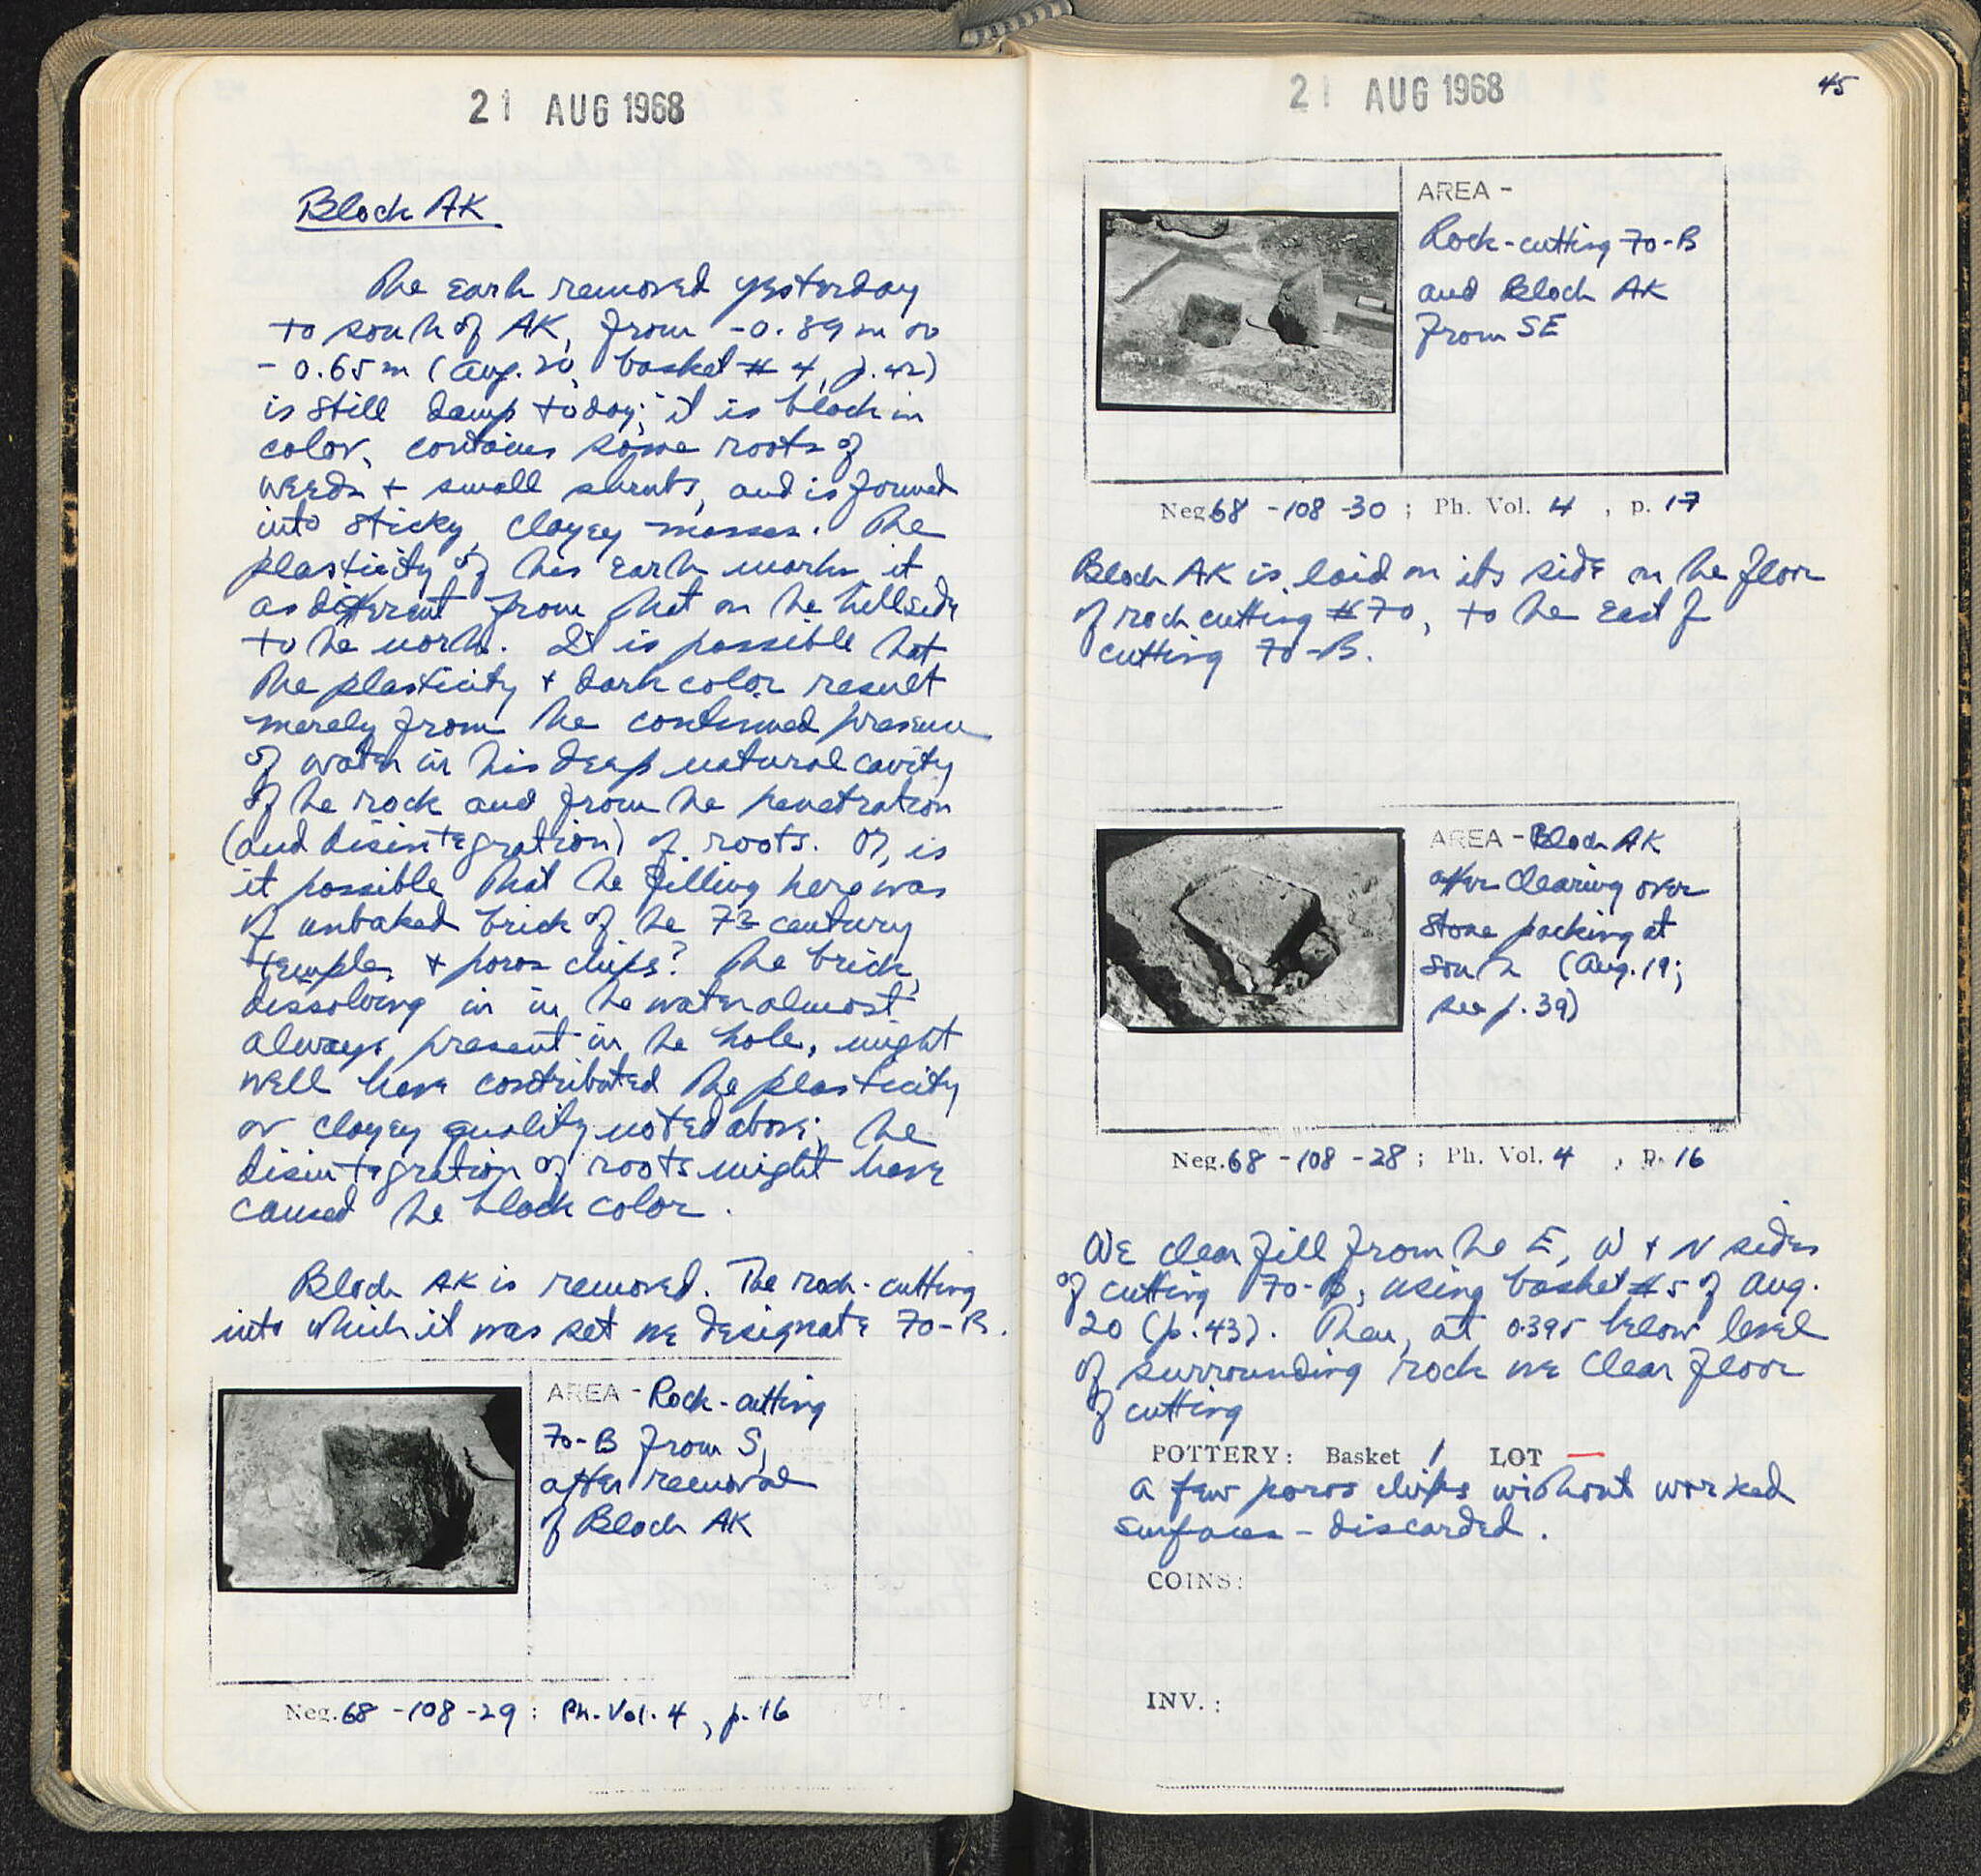 21 AUG 1968
Block AK
The earth removed yesterday
to south of AK, from -0.39 m to
- 0.65 m (Aug. 20, basket # 4, p. 42)
is still damp today; it is black in
color, contains some roots of
weeds + small shrubs, and is formed
into sticky, clayey masses. The
plasticity of this earth marks it
as different from that on the hillside
to the north. It is possible that
the plasticity + dark color result
merely from the continued presence
of water in this deep natural cavity
of the rock and from the penetration
(and disintegration) of roots. Or, is
it possible that the filling here was
of unbaked brick of the 7th century
temple, + poros chips? The brick,
dissolving in in the water almost
always present in the hole, might
well have contributed the plasticity
or clayey quality noted above; the
disintegration of roots might have
caused the black color.
Block AK is removed. The rock-cutting
into which it was set we designate 70-B.
AREA - Rock-cutting
70-B from S,
after removal
of Block AK
Neg. 68 -108 -29 ; Ph. Vol. 4 , p. 16
21 AUG 1968
45
AREA -
Rock-cutting 70-B
and Block AK
from SE
Neg. 68 -108 -30 ; Ph. Vol. 4 , p. 17
Block AK is laid on its side on the floor
of rock cutting #70, to the east of
cutting 70-B.
AREA - Block AK
after clearing over
stone packing at
south (Aug. 19;
see p. 39)
Neg. 68 -108 -28 ; Ph. Vol. 4 , p. 16
We clear fill from the E, W + N sides
of cutting 70-B, using basket #5 of Aug.
20 (p. 43). Then, at 0.395 below level
of surrounding rock we clear floor
of cutting
POTTERY: Basket 1 LOT —
a few poros chips without worked
surfaces - discarded.
COINS:
INV. :